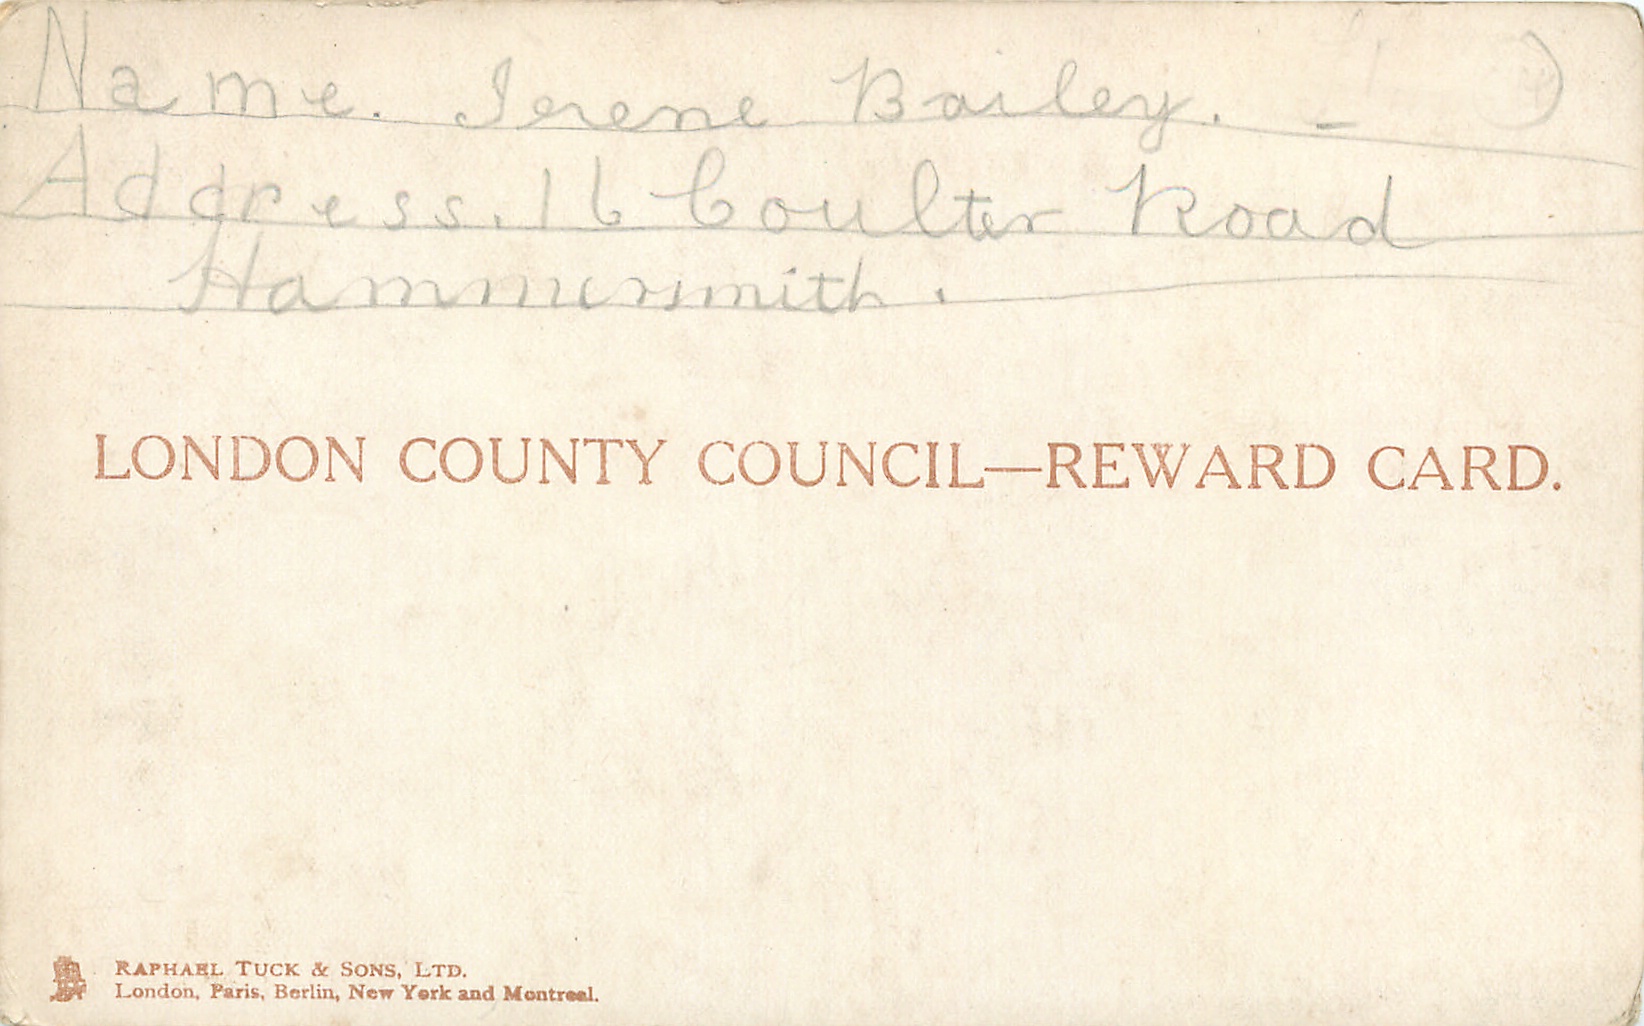 Name. Ierene Bailey.
Address. 16 Coulter Road
Hammersmith.
LONDON COUNTY COUNCIL—REWARD CARD.
RAPHAEL TUCK & SONS, LTD.
London, Paris, Berlin, New York and Montreal.